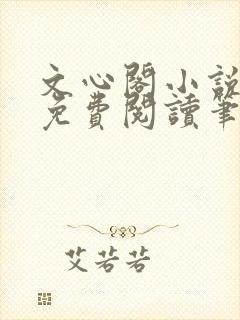 文心閣小說
免費閱讀筆
艾若若